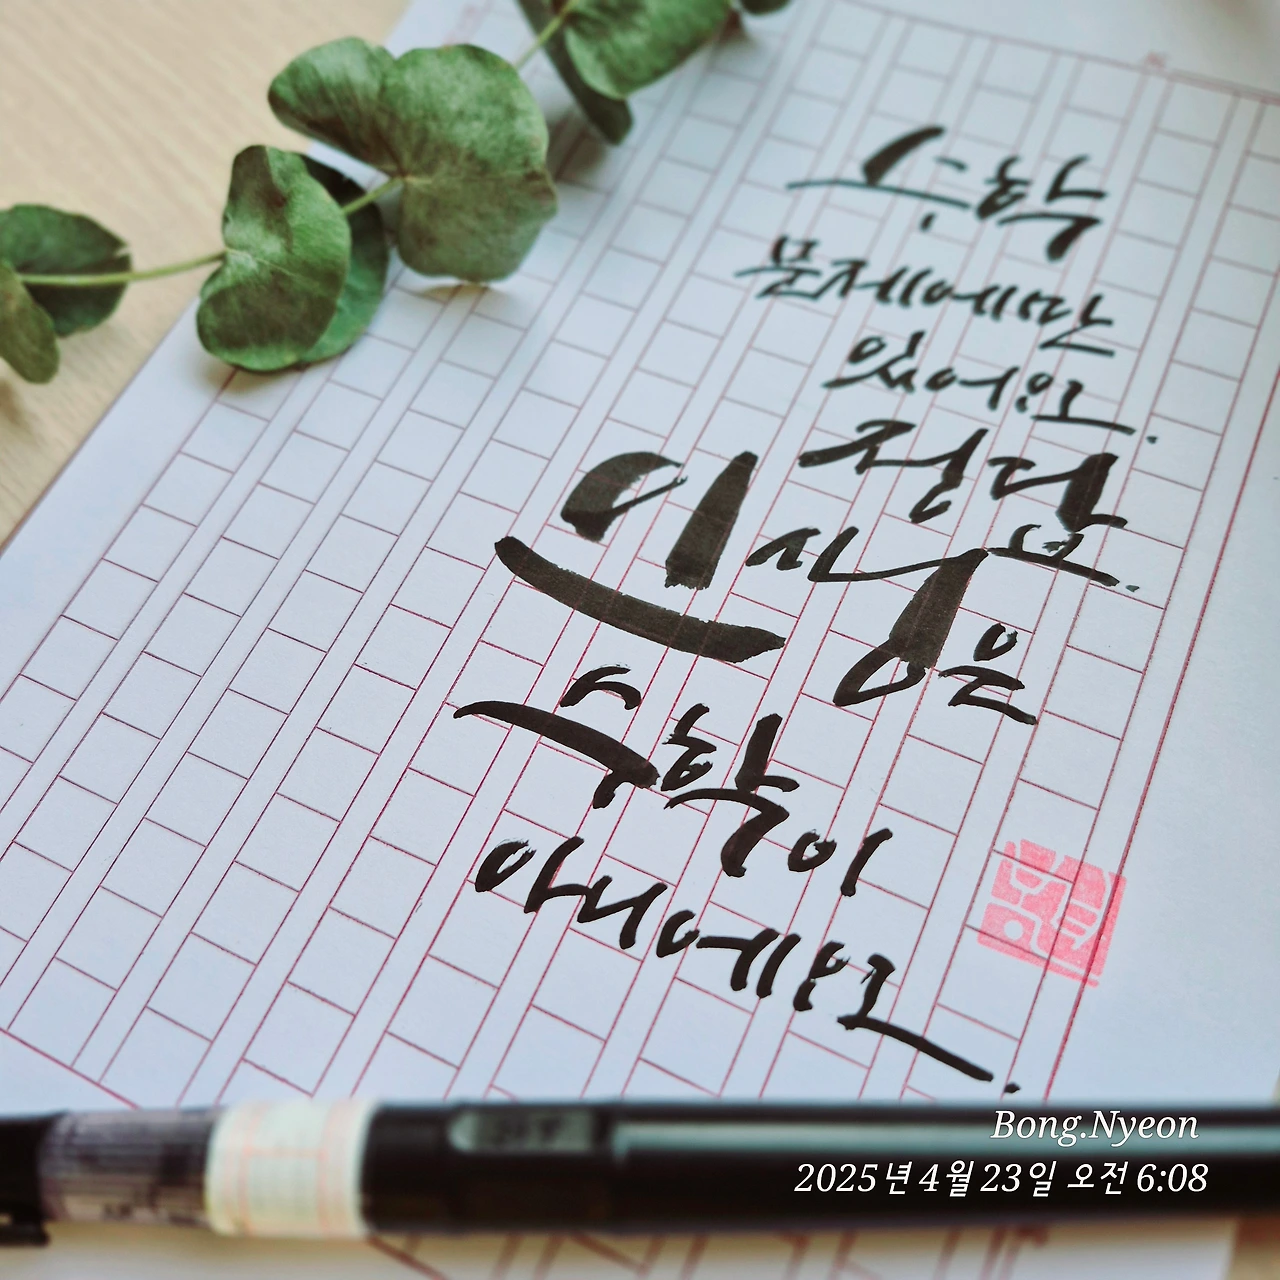 수학
문제에만
있어요.
정답요.
인생은
수학이
아니에요.
Bong.Nyeon
2025년 4월 23일 오전 6:08